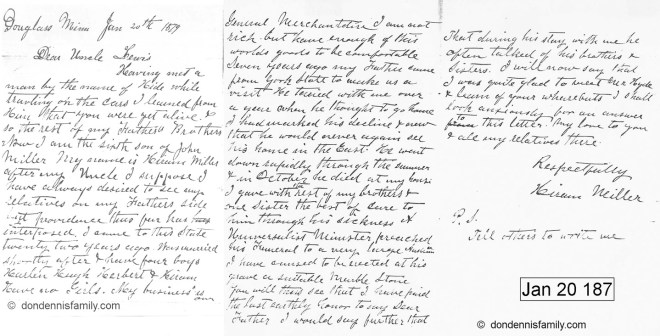 Douglass Minn Jan 20th 1879
Dear Uncle Lewis
Having met a
man by the name of Hide while
traveling on the cars I learned from
Him that you were yet alive &
so the rest of my Fathers Brothers
Now I am the sixth son of John
Miller My name is Hiram Miller
after my Uncle I suppose I
have always desired to see my
relatives on my Fathers side
yet providence thus fur has
interposed. I came to this State
twenty two years ago Was married
shortly after & have four boys
Harlen Hugh Herbert & Hiram
Have no Girls. My business is
General Merchantdise I am not
rich but have enough of this
worlds goods to be comfortable
Seven years ago my Father came
from York State to make us a
visit He tarried with me over
a year when he thought to go home
I had marked his decline & new
that he would never again see
his home in the East. He went
down rapidly through the summer
& in October he died at my house
I gave with rest of my brothers &
one sister the best of care to
him through his sickness A
Universalist Minister preached
his funeral to a very large
I have caused to be erected at his
grave a suitable Marble Stone
You will thus see that I have paid
the last earthly honor to my Dear
Father I would say further that
That during his stay with me he
often talked of his brothers &
Sisters. I will now say that
I was quite glad to meet Mr Hyde
& learn of your whereabuts I shall
look anxiously for an answer
to this letter. My love to you
& all my relatives there
Respectfully
Hiram Miller
P.S.
Tell others to write me
Jan 20 187
© dondennisfamily.com
© dondennisfamily.com